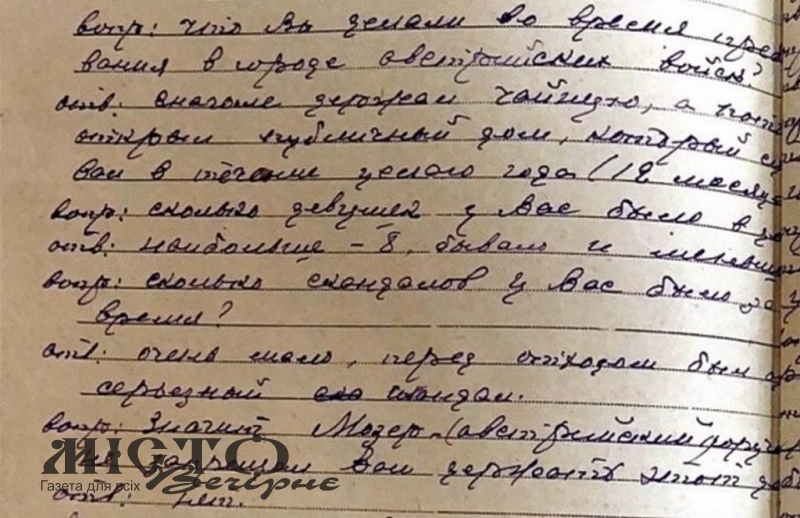 вопр: что Вы делали во время пре
вания в городе австрийских войск?
отв: сначала держал чайную, а пот
открыл публичный дом, который
вал в течении целого года (12 месяце
вопр: сколько девушек у Вас было в
отв: наибольше – 8, бывало и меньш
вопр: сколько скандалов у Вас было за
время?
отв: очень мало, перед отходом был
серьезный ско скандал.
вопр: Значит Мозер (австрийский поруч
не запрещал Вам держать этот
отв: нет.
МІСТО
Вечірнє
Газета для всіх